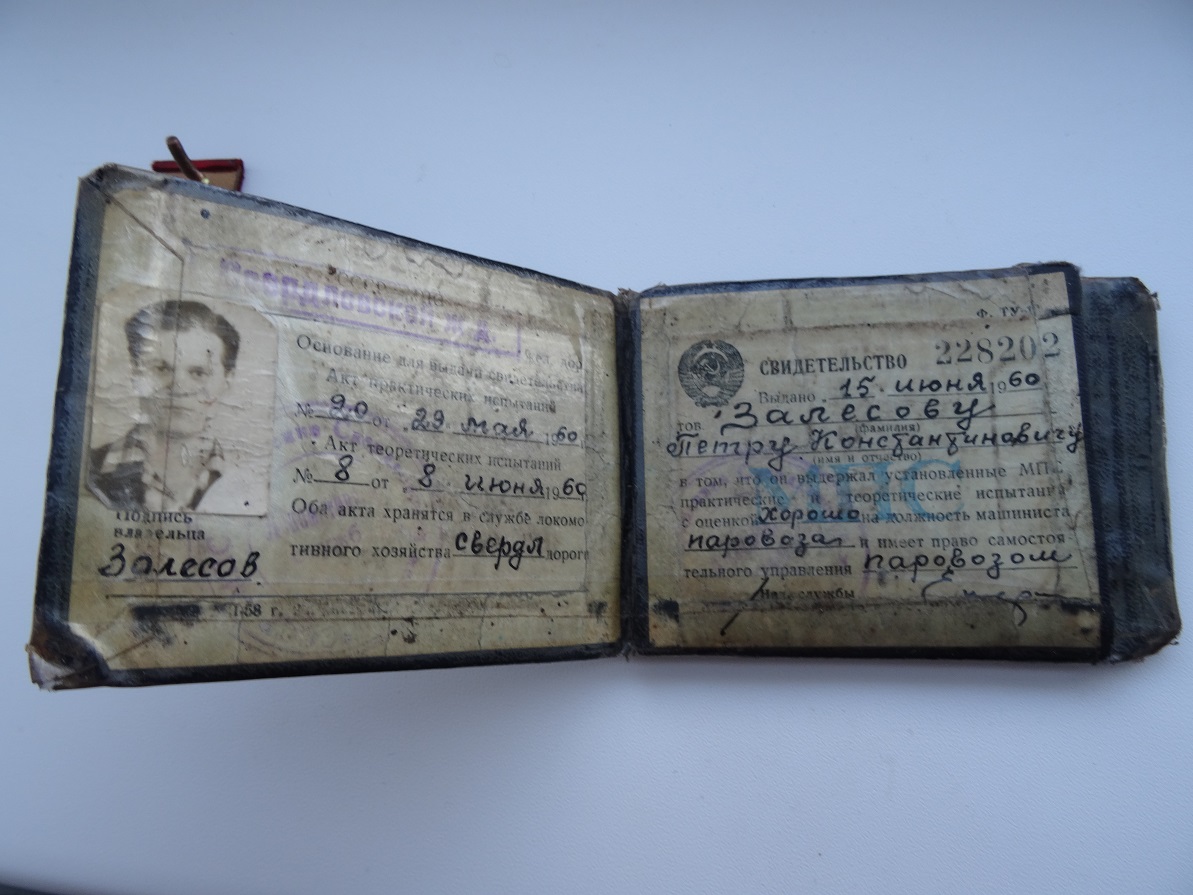 СССР МПС
Свердловской ж. д.
жел. дор.
Основание для выдачи свидетельства
Акт практических испытаний
№ 20 от 29 мая 1960
Акт теоретических испытаний
№ 8 от 8 июня 1960
Оба акта хранятся в службе локомо-
тивного хозяйства свердл дороги
Подпись
владельца
Залесов
1.58 г.
Ф. ТУ-
СВИДЕТЕЛЬСТВО 228202
Выдано 15 июня 1960
тов. Залесову
(фамилия)
Петру Константиновичу
(имя и отчество)
МПС
в том, что он выдержал установленные МПС
практические и теоретические испытания
с оценкой хорошо на должность машиниста
паровоза и имеет право самостоя-
тельного управления паровозом
Нач. службы